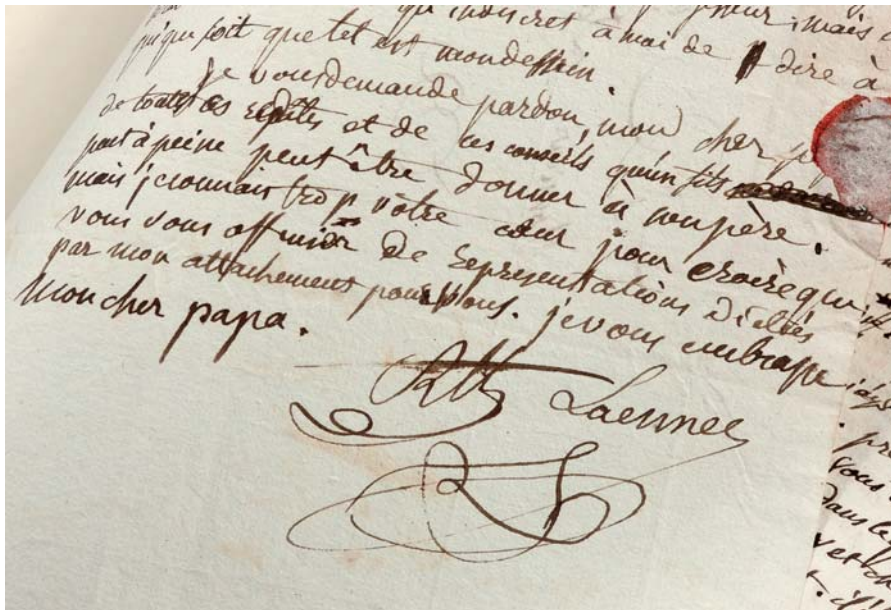 qu'indiscret à moi de dire à
qui que soit que tel est mon dessein.
je vous demande pardon, mon cher p
de toutes ces et de ces conseils qu'un fils
peut à peine peut être donner à son père.
mais je connais trop vôtre cœur pour croire que
vous vous offensiez de représentations dictées
par mon attachement pour vous. je vous embrasse
mon cher papa.
Laennec
pre
vous
dans le